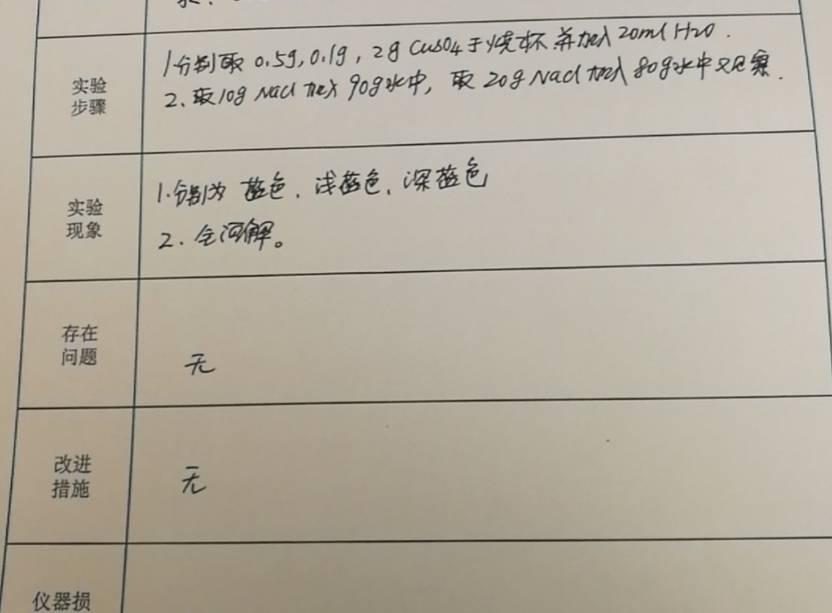 实验
步骤
1分别取 0.5g,0.1g,2g CuSO4于烧杯并加入20ml H2O.
2.取10g Nacl 加入90g水中, 取20g Nacl加入80g水中观察.
实验
现象
1.分别为 蓝色、浅蓝色、深蓝色
2.全溶解。
存在
问题
无
改进
措施
无
仪器损